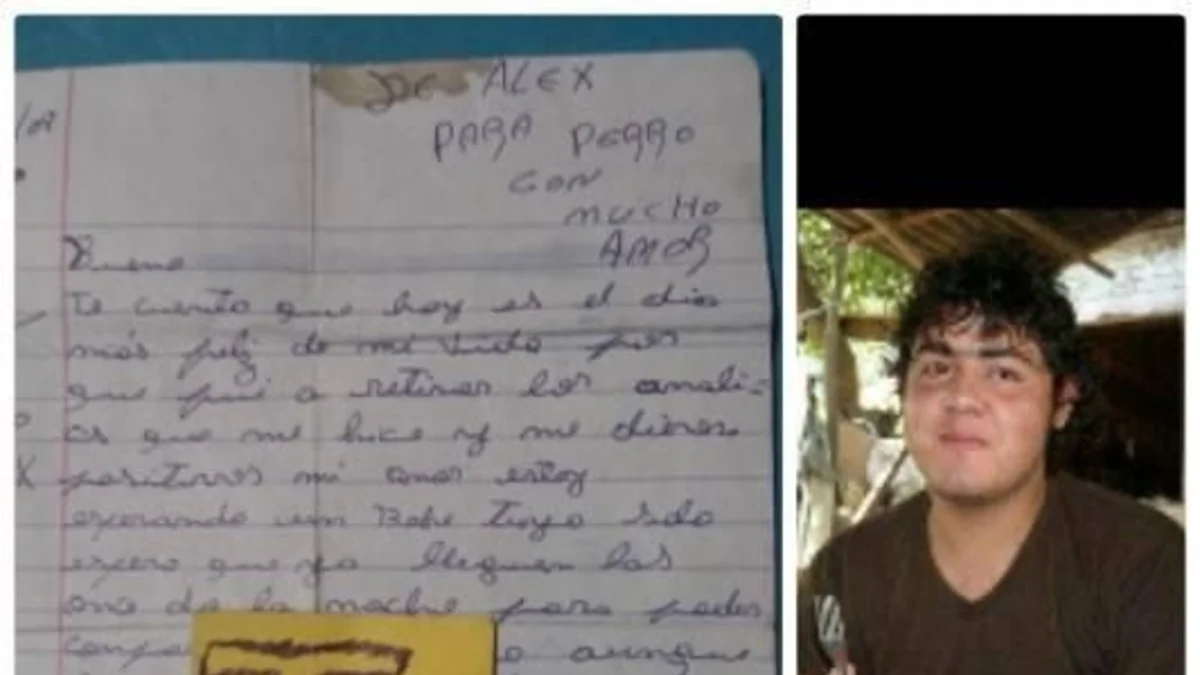 DE ALEX
PARA PERRO
CON
MUCHO
AMOR
Bueno
Te cuento que hoy es el dia
más feliz de mi vida por
que fui a retirar los anali=
os que me hice y me dieron
positivos mi amor estoy
esperando un Bebe Tuyo solo
espero que ya lleguen las
de la noche para poder
aunque